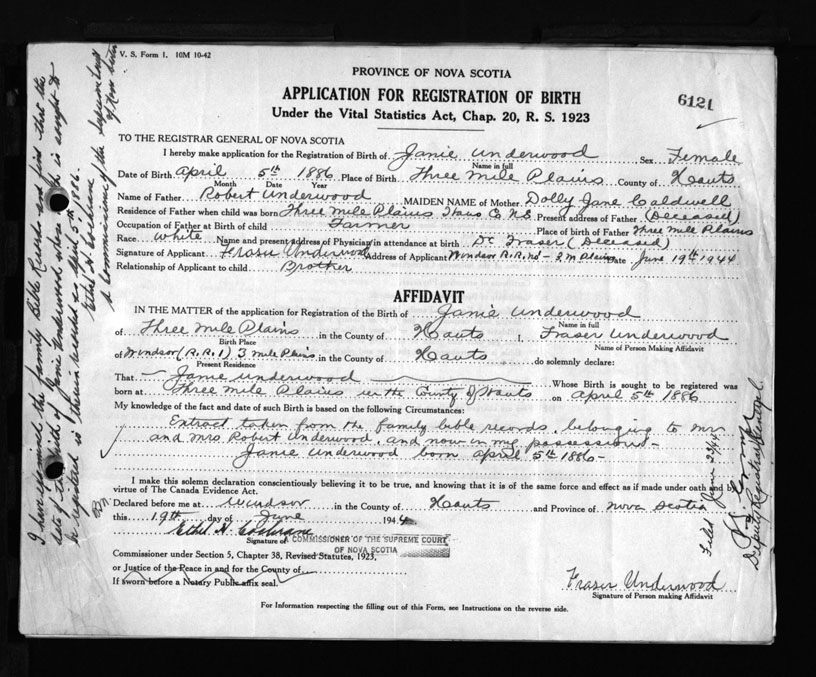 V. S. Form 1. 10M 10-42
PROVINCE OF NOVA SCOTIA
APPLICATION FOR REGISTRATION OF BIRTH
6121
Under the Vital Statistics Act, Chap. 20, R. S. 1923
TO THE REGISTRAR GENERAL OF NOVA SCOTIA
I hereby make application for the Registration of Birth of Janie Underwood Sex Female
Name in full
Date of Birth April 5th 1886 Place of Birth Three Mile Plains County of Hants
Month Date Year
Name of Father Robert Underwood MAIDEN NAME of Mother Dolly Jane Caldwell
Residence of Father when child was born Three Mile Plains Hans Co N.S. Present address of Father (Deceased)
Occupation of Father at Birth of child Farmer Place of birth of Father Three Mile Plains
Race White Name and present address of Physician in attendance at birth Dr Fraser (Deceased)
Signature of Applicant Fraser Underwood Address of Applicant Windsor R.R. No 1 - 3 M Plains Date June 19th 1944
Relationship of Applicant to child Brother
AFFIDAVIT
IN THE MATTER of the application for Registration of the Birth of Janie Underwood
Name in full
of Three Mile Plains in the County of Hants I, Fraser Underwood
Birth Place Name of Person Making Affidavit
of Windsor (R.R.1) 3 Mile Plains in the County of Hants do solemnly declare:
Present Residence
That Janie Underwood Whose Birth is sought to be registered was
born at Three Mile Plains in the County of Hants on April 5th 1886
My knowledge of the fact and date of such Birth is based on the following Circumstances:
Extract taken from the family bible records, belonging to Mr
and Mrs Robert Underwood, and now in my possession-
Janie Underwood born April 5th 1886-
I make this solemn declaration conscientiously believing it to be true, and knowing that it is of the same force and effect as if made under oath and by
virtue of The Canada Evidence Act.
Declared before me at Windsor in the County of Hants and Province of Nova Scotia
this 19th day of June 1944
Ethel A. Cochrane
Signature of A COMMISSIONER OF THE SUPREME COURT
OF NOVA SCOTIA
Commissioner under Section 5, Chapter 38, Revised Statutes, 1923,
or Justice of the Peace in and for the County of
If sworn before a Notary Public affix seal.
Fraser Underwood
Signature of Person making Affidavit
For Information respecting the filling out of this Form, see Instructions on the reverse side.
I have examined the family Bible Records and find that the
date of the birth of Janie Underwood whose birth is sought to
be registered is therein recorded as April 5th 1886.
Ethel A. Cochrane
A Commissioner of the Supreme Court
of Nova Scotia
Filed June 22/44
Deputy Registrar General